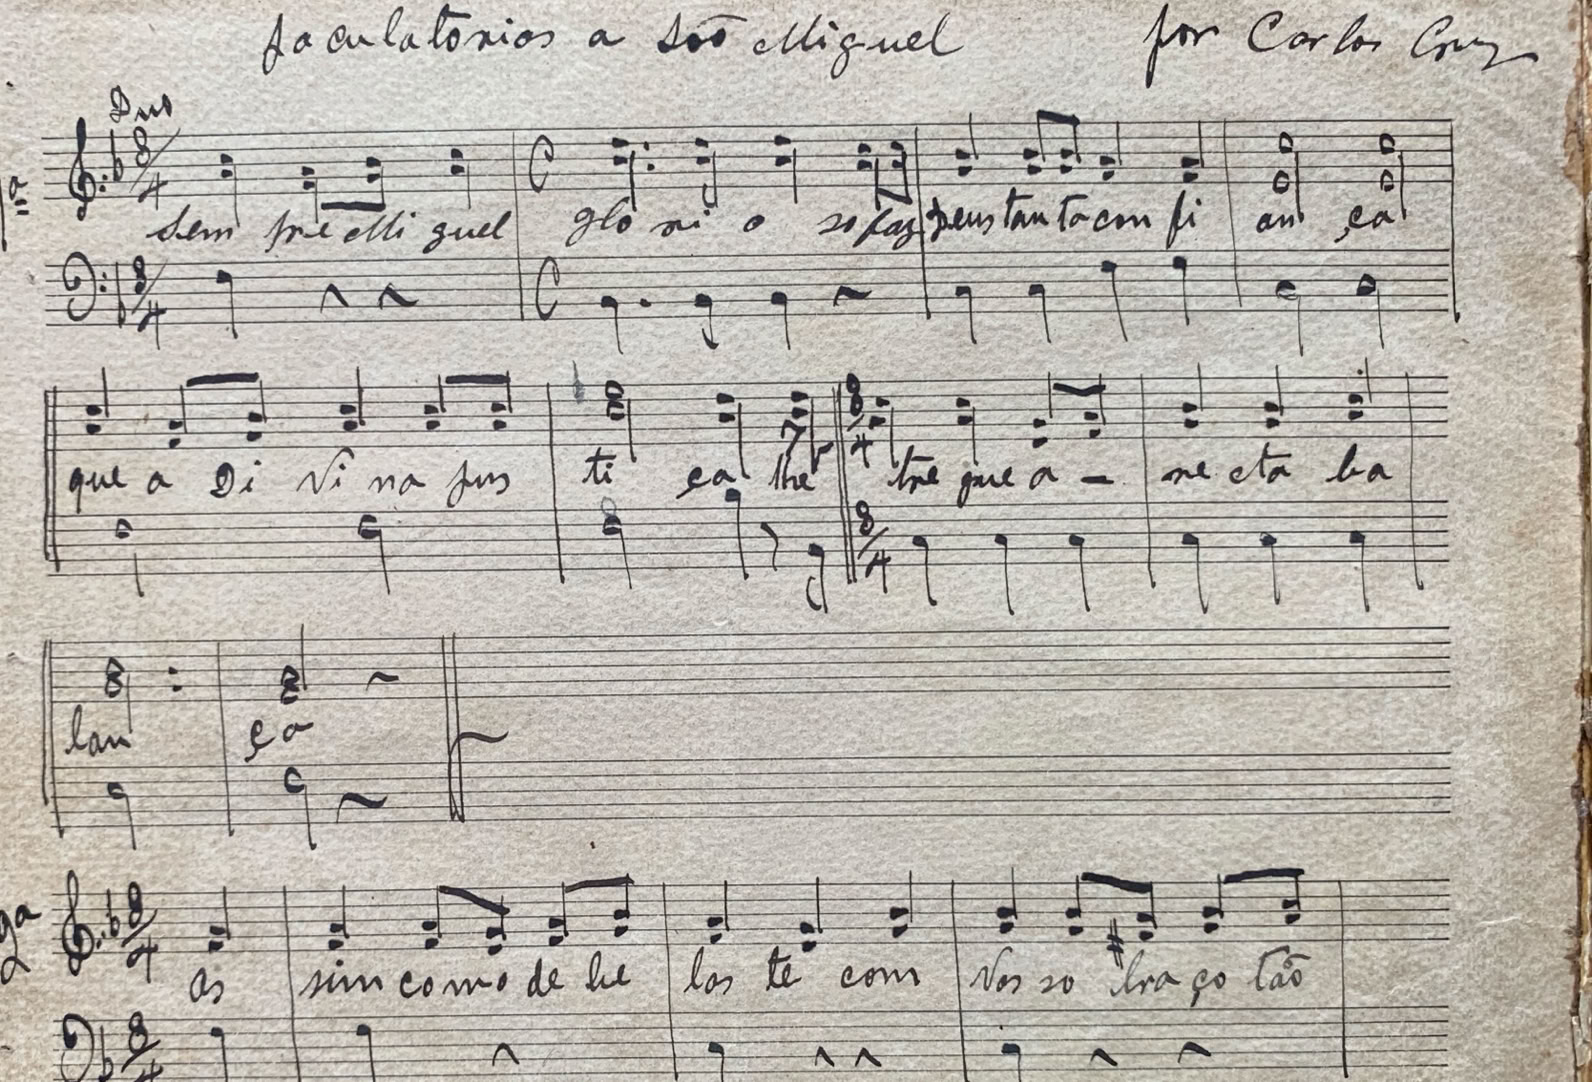 Jaculatorias a São Miguel por Carlos Cruz
Duo
1ª
3/4 C
Sem pre Mi guel glo ri o so faz Deus tan ta con fi an ça
3/4 C
3/4
que a Di vi na jus ti ça lhe tre gue a – re cta ba
3/4
lan ça
3/4
As sim como de be las te com Vos so bra ço tão
3/4